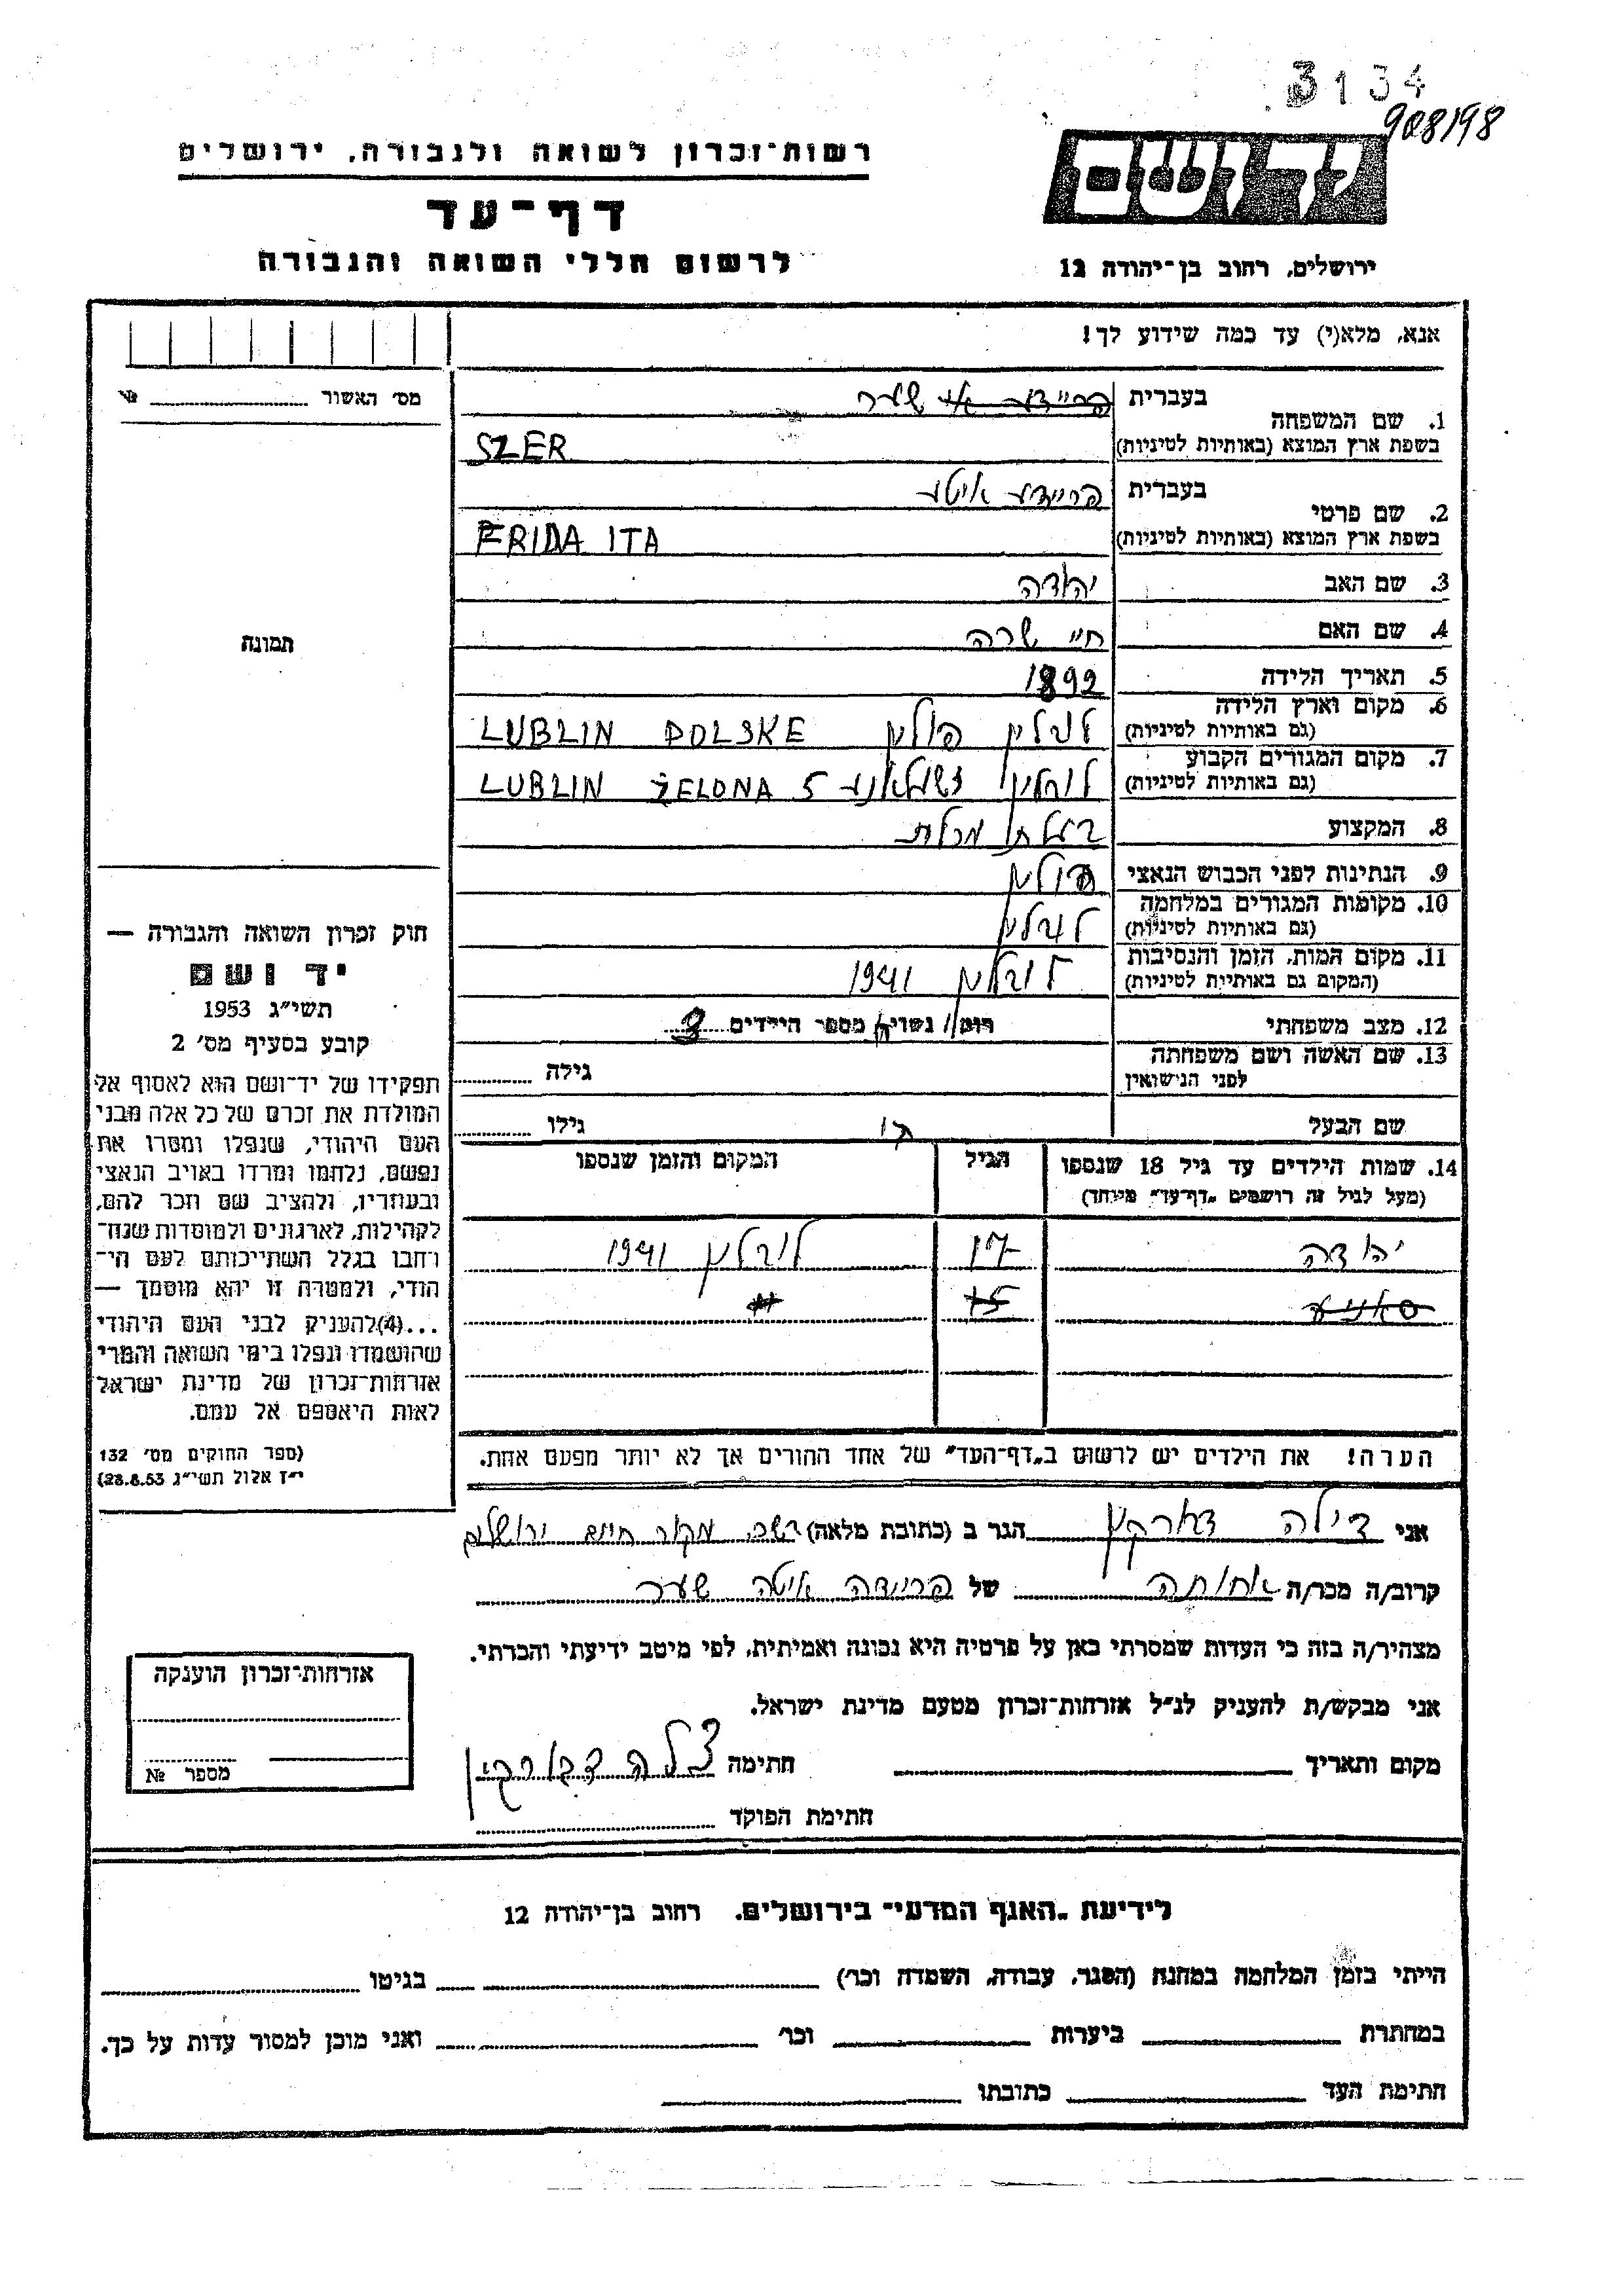 3134
908198
יד ושם
ירושלים, רחוב בן־יהודה 12
רשות־זכרון לשואה ולגבורה, ירושלים
דף־עד
לרשום חללי השואה והגבורה
אנא, מלא(י) עד כמה שידוע לך!
מס׳ האשור № 
1. שם המשפחה
בעברית פריידע שער
בשפת ארץ המוצא (באותיות לטיניות) SZER
2. שם פרטי
בעברית פריידע איטע
בשפת ארץ המוצא (באותיות לטיניות) FRIDA ITA
3. שם האב יהודה
4. שם האם חיי שרה
5. תאריך הלידה 1892
6. מקום וארץ הלידה (גם באותיות לטיניות) לובלין פולין LUBLIN POLSKE
7. מקום המגורים הקבוע (גם באותיות לטיניות) לובלין LUBLIN ŻELONA 5
8. המקצוע בעלת מכלת
9. הנתינות לפני הכבוש הנאצי פולין
10. מקומות המגורים במלחמה (גם באותיות לטיניות) לובלין
11. מקום המות, הזמן והנסיבות (המקום גם באותיות לטיניות) לובלין 1941
12. מצב משפחתי רוק/ נשוי/ה מספר הילדים 3
13. שם האשה ושם משפחתה לפני הנישואין גילה
שם הבעל גילו
14. שמות הילדים עד גיל 18 שנספו
(מעל לגיל זה רושמים „דף־עד״ מיוחד)
הגיל
המקום והזמן שנספו
יהודה 17 לובלין 1941
סאניע 15 "
הערה! את הילדים יש לרשום ב„דף־העד״ של אחד ההורים אך לא יותר מפעם אחת.
תמונה
חוק זכרון השואה והגבורה —
יד ושם
תשי״ג 1953
קובע בסעיף מס׳ 2
תפקידו של יד־ושם הוא לאסוף אל
המולדת את זכרם של כל אלה מבני
העם היהודי, שנפלו ומסרו את
נפשם, נלחמו ומרדו באויב הנאצי
ובעוזריו, ולהציב שם וזכר להם,
לקהילות, לארגונים ולמוסדות שנח־
רחבו בגלל השתייכותם לעם הי־
הודי, ולמטרה זו יהא מוסמך —
...(4)להעניק לבני העם היהודי
שהושמדו ונפלו בימי השואה והמרי
אזרחות־זכרון של מדינת ישראל
לאות היאספם אל עמם.
(ספר החוקים מס׳ 132
י״ז אלול תשי״ג 28.8.53)
אני צילה הגר ב (כתובת מלאה) מקור חיים ירושלים
קרוב/ה מכר/ה אחותה של פריידה איטה שער
מצהיר/ה בזה כי העדות שמסרתי כאן על פרטיה היא נכונה ואמיתית, לפי מיטב ידיעתי והכרתי.
אני מבקש/ת להעניק לנ״ל אזרחות־זכרון מטעם מדינת ישראל.
מקום ותאריך חתימה צילה
חתימת הפוקד
אזרחות־זכרון הוענקה
מספר №
לידיעת „האגף המדעי״ בירושלים. רחוב בן־יהודה 12
הייתי בזמן המלחמה במחנה (הסגר, עבודה, השמדה וכו׳) בגיטו
במחתרת ביערות וכו׳ ואני מוכן למסור עדות על כך.
חתימת העד כתובתו